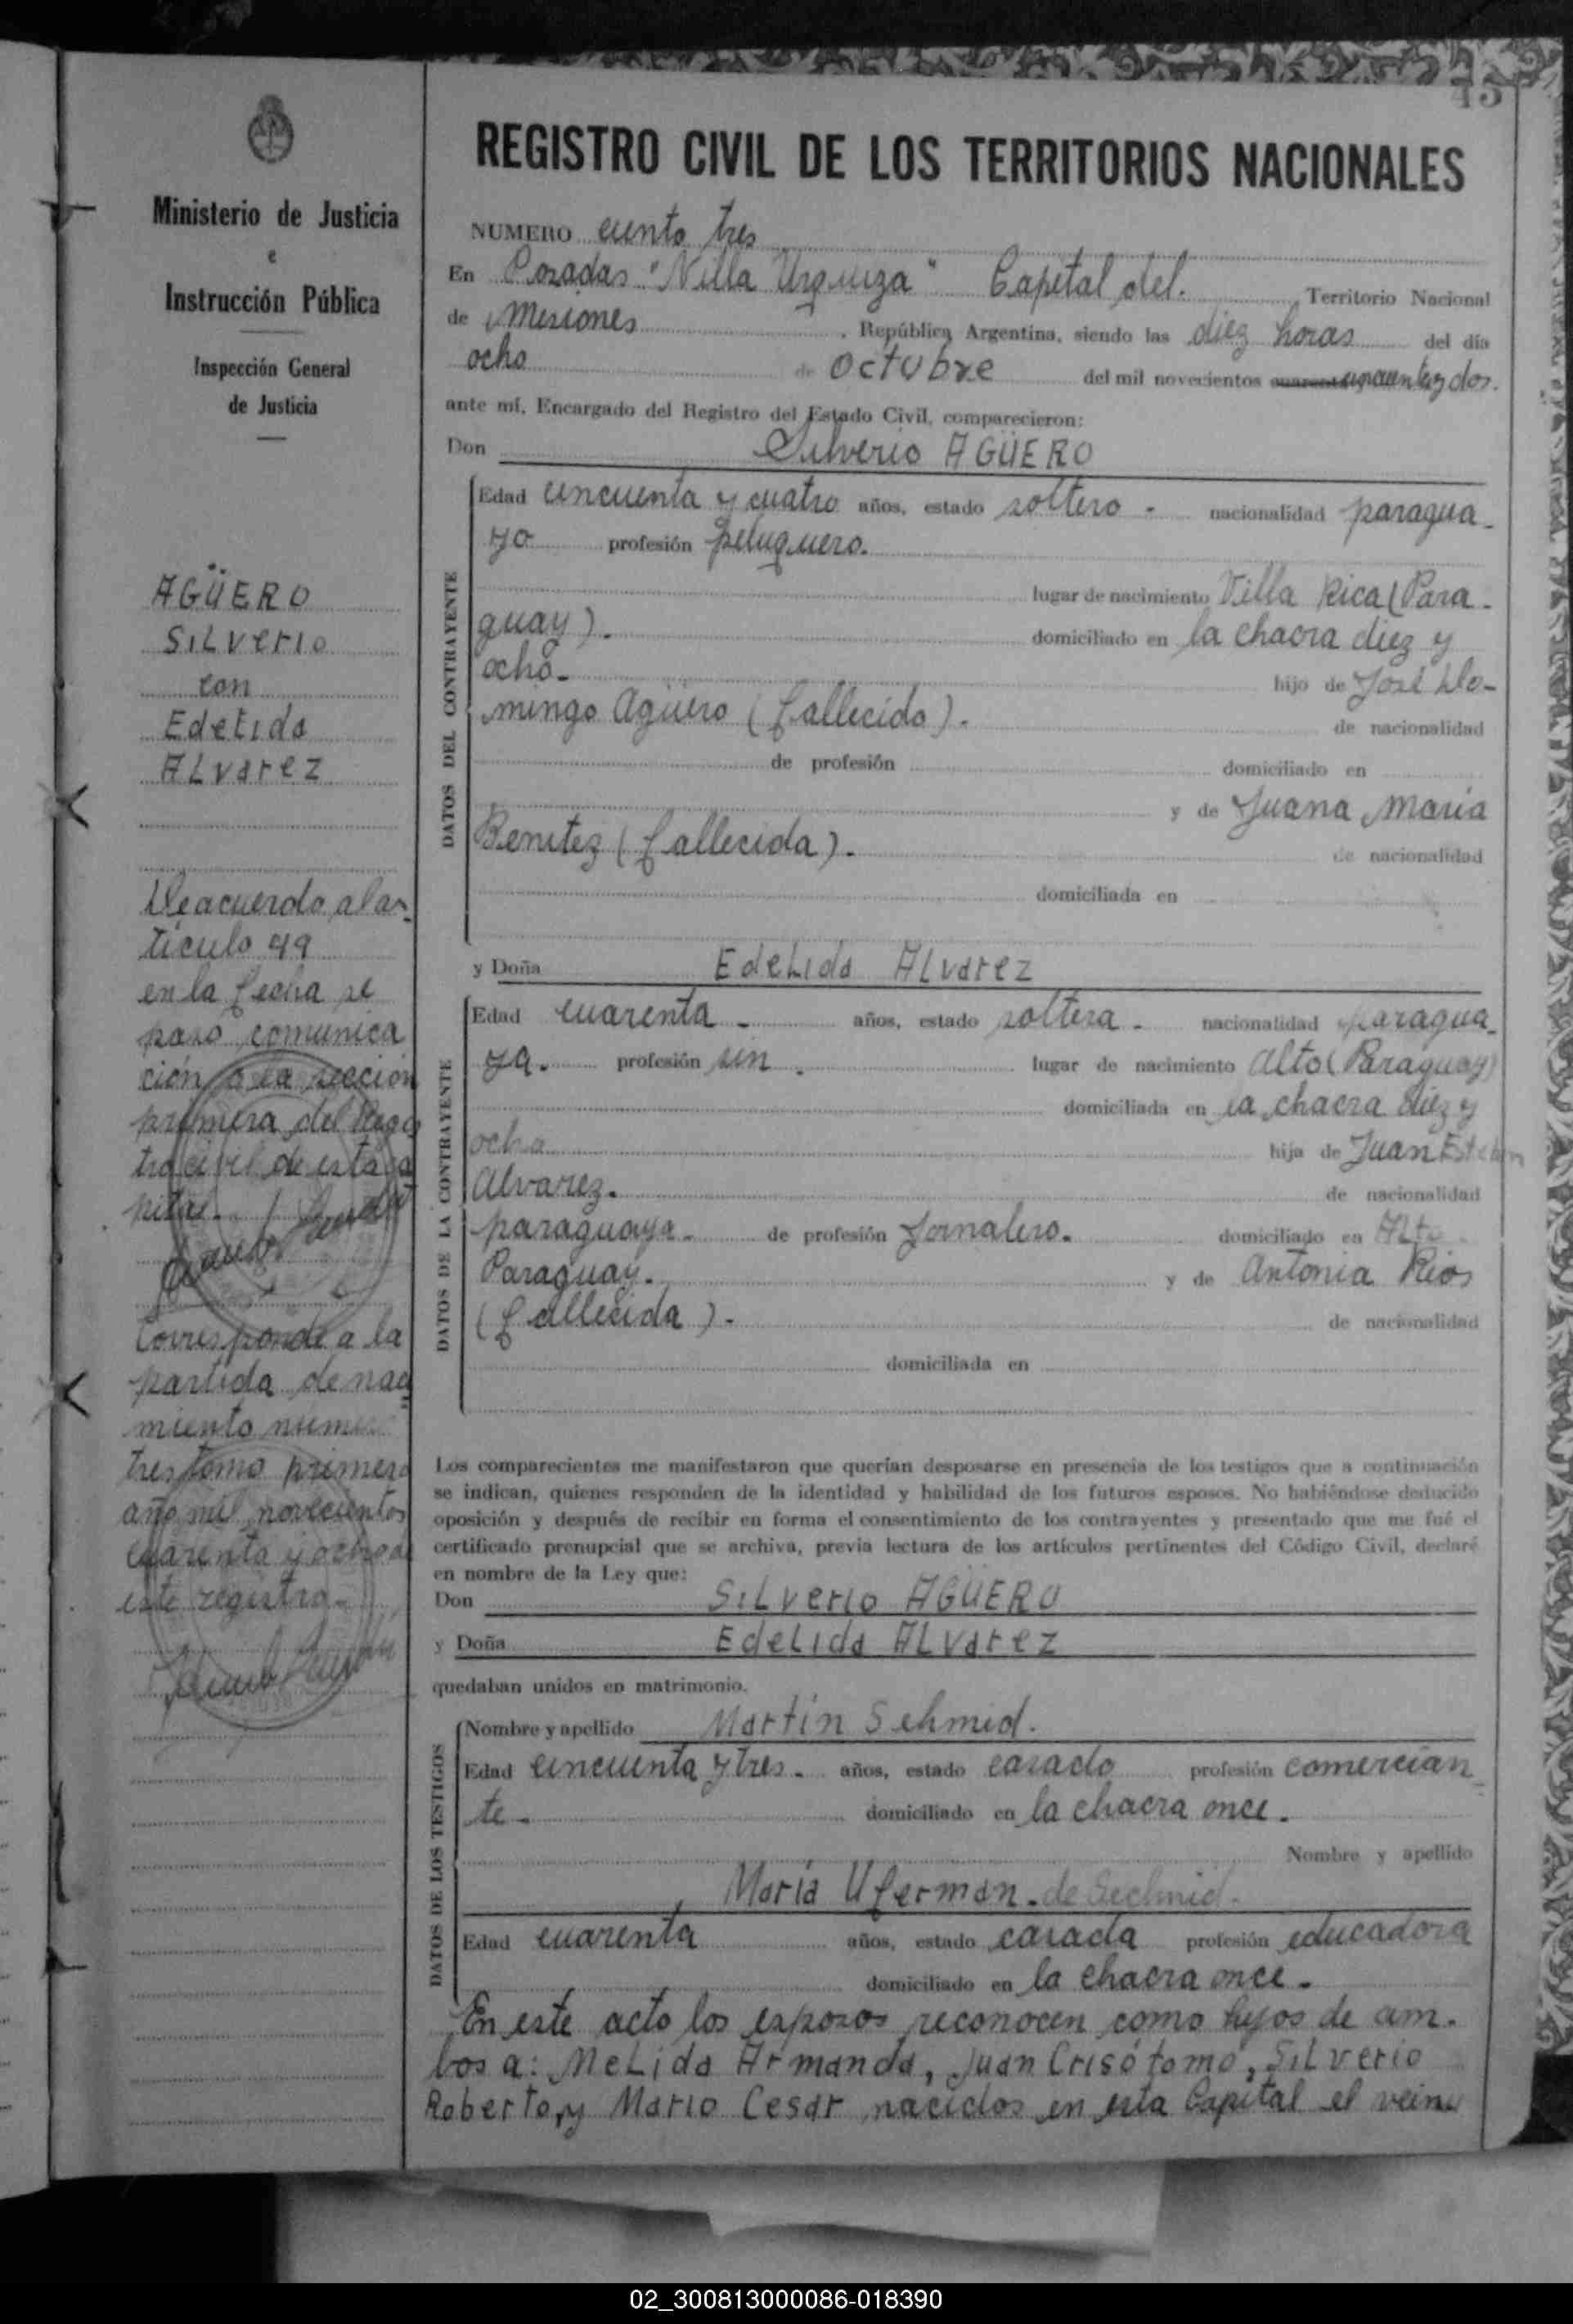 45
Ministerio de Justicia
e
Instrucción Pública
Inspección General
de Justicia
AGÜERO
SILVerio
con
Edelida
ALvarez
De acuerdo al ar-
tículo 49
en la fecha se
paso comunica
ción a la sección
primera del Regis
tro civil de esta ca
pital.
Corresponde a la
partida de naci
miento numero
tres tomo primero
año mil novecientos
cuarenta y ocho de
este registro.-
REGISTRO CIVIL DE LOS TERRITORIOS NACIONALES
NUMERO ciento tres
En Posadas "Villa Urquiza" Capital del. Territorio Nacional
de Misiones República Argentina, siendo las diez horas del día
ocho de octubre del mil novecientos cincuenta y dos.
ante mí, Encargado del Registro del Estado Civil, comparecieron:
Don Silverio AGÜERO
DATOS DEL CONTRAYENTE
Edad cincuenta y cuatro años, estado soltero - nacionalidad paragua-
yo profesión peluquero.
lugar de nacimiento Villa Rica (Para-
guay). domiciliado en la chacra diez y
ocho- hijo de José Do-
mingo Agüero (fallecido). de nacionalidad
de profesión domiciliado en
y de Juana María
Benitez (fallecida). de nacionalidad
domiciliada en
y Doña EdeLida ALvarez
DATOS DE LA CONTRAYENTE
Edad cuarenta - años, estado soltera - nacionalidad paragua-
ya. profesión sin. lugar de nacimiento Alto (Paraguay)
domiciliada en la chacra diez y
ocho hija de Juan Esteban
Alvarez. de nacionalidad
paraguaya. de profesión Jornalero. domiciliado en Alto
Paraguay. y de Antonia Rios
(fallecida). de nacionalidad
domiciliada en
Los comparecientes me manifestaron que querían desposarse en presencia de los testigos que a continuación
se indican, quienes responden de la identidad y habilidad de los futuros esposos. No habiéndose deducido
oposición y después de recibir en forma el consentimiento de los contrayentes y presentado que me fué el
certificado prenupcial que se archiva, previa lectura de los artículos pertinentes del Código Civil, declaré
en nombre de la Ley que:
Don SILverio AGÜERO
y Doña EdeLida ALvarez
quedaban unidos en matrimonio.
DATOS DE LOS TESTIGOS
Nombre y apellido Martín Schmid.
Edad cincuenta y tres. años, estado casado profesión comercian-
te- domiciliado en la chacra once.
Nombre y apellido
María Uferman. de Schmid.
Edad cuarenta años, estado casada profesión educadora
domiciliado en la chacra once.
En este acto los esposos reconocen como hijos de am-
bos a: MeLida Armanda, Juan Crisótomo, SILverio
Roberto, y Mario Cesar nacidos en esta Capital el vein
02_300813000086-018390